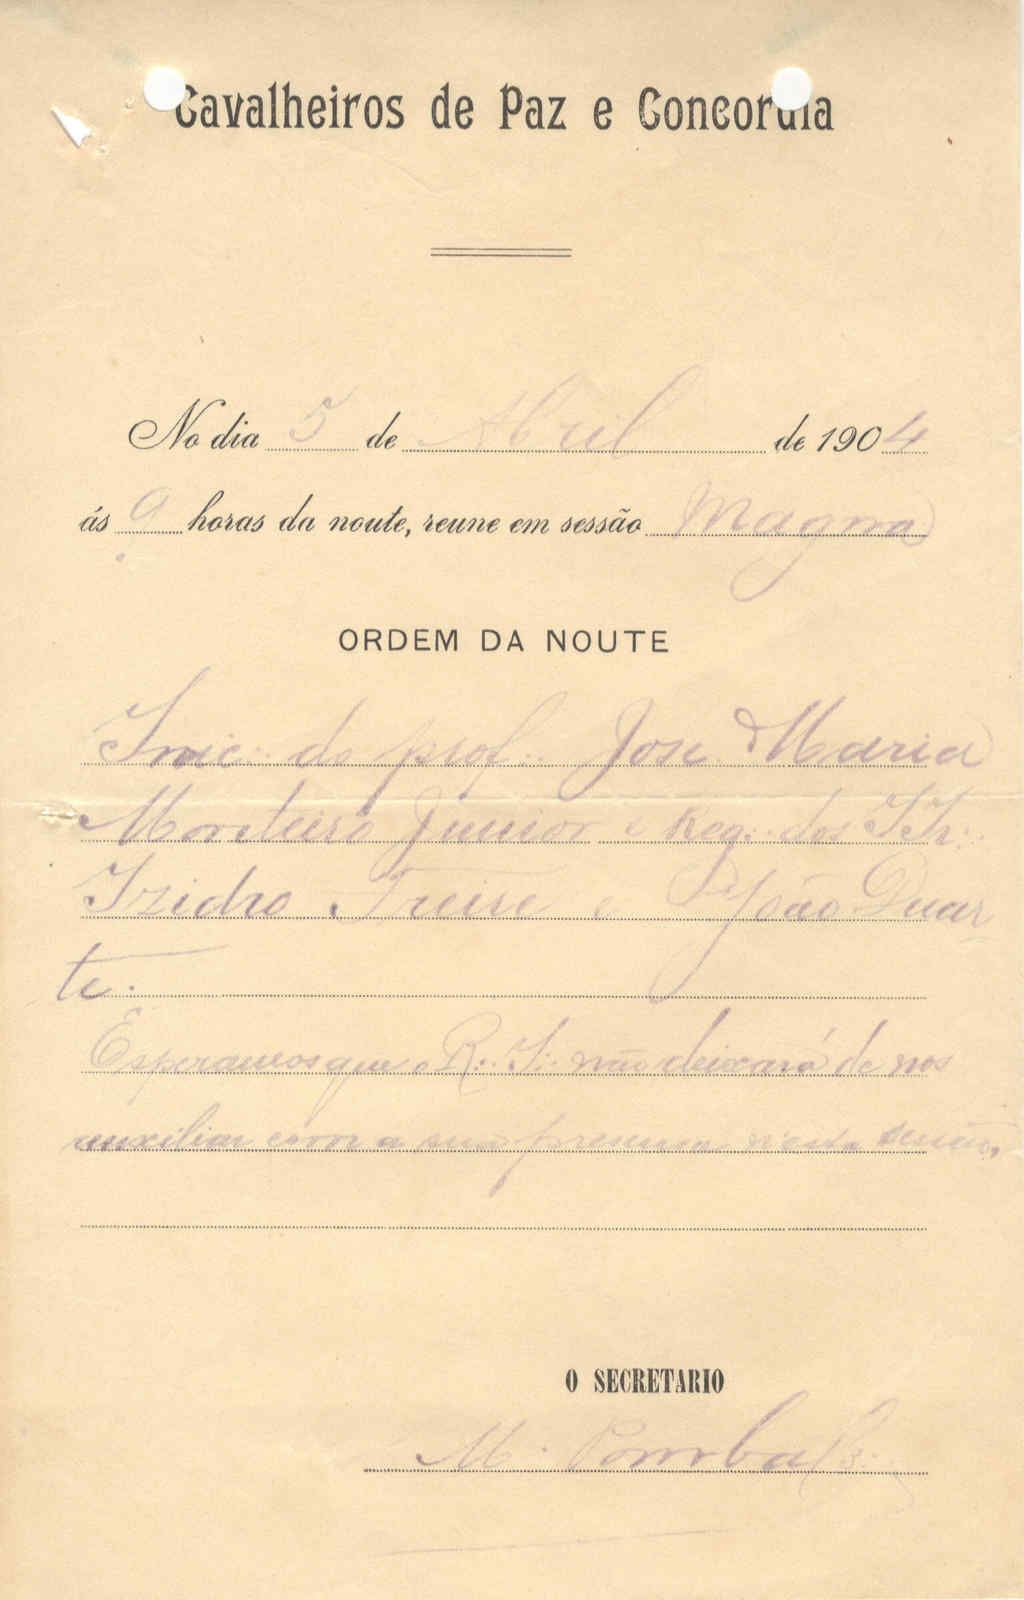 Cavalheiros de Paz e Concordia
No dia 5 de Abril de 1904
ás 9 horas da noute, reune em sessão Magna
ORDEM DA NOUTE
Inic∴ do prof∴ José Maria
Monteiro Junior e Reg∴ dos IIr∴
Izidro Freire e João Duar
te.
Esperamos que o R∴ I∴ não deixará de nos
auxiliar com a sua presença n'esta sessão.
O SECRETARIO
M. Pombal